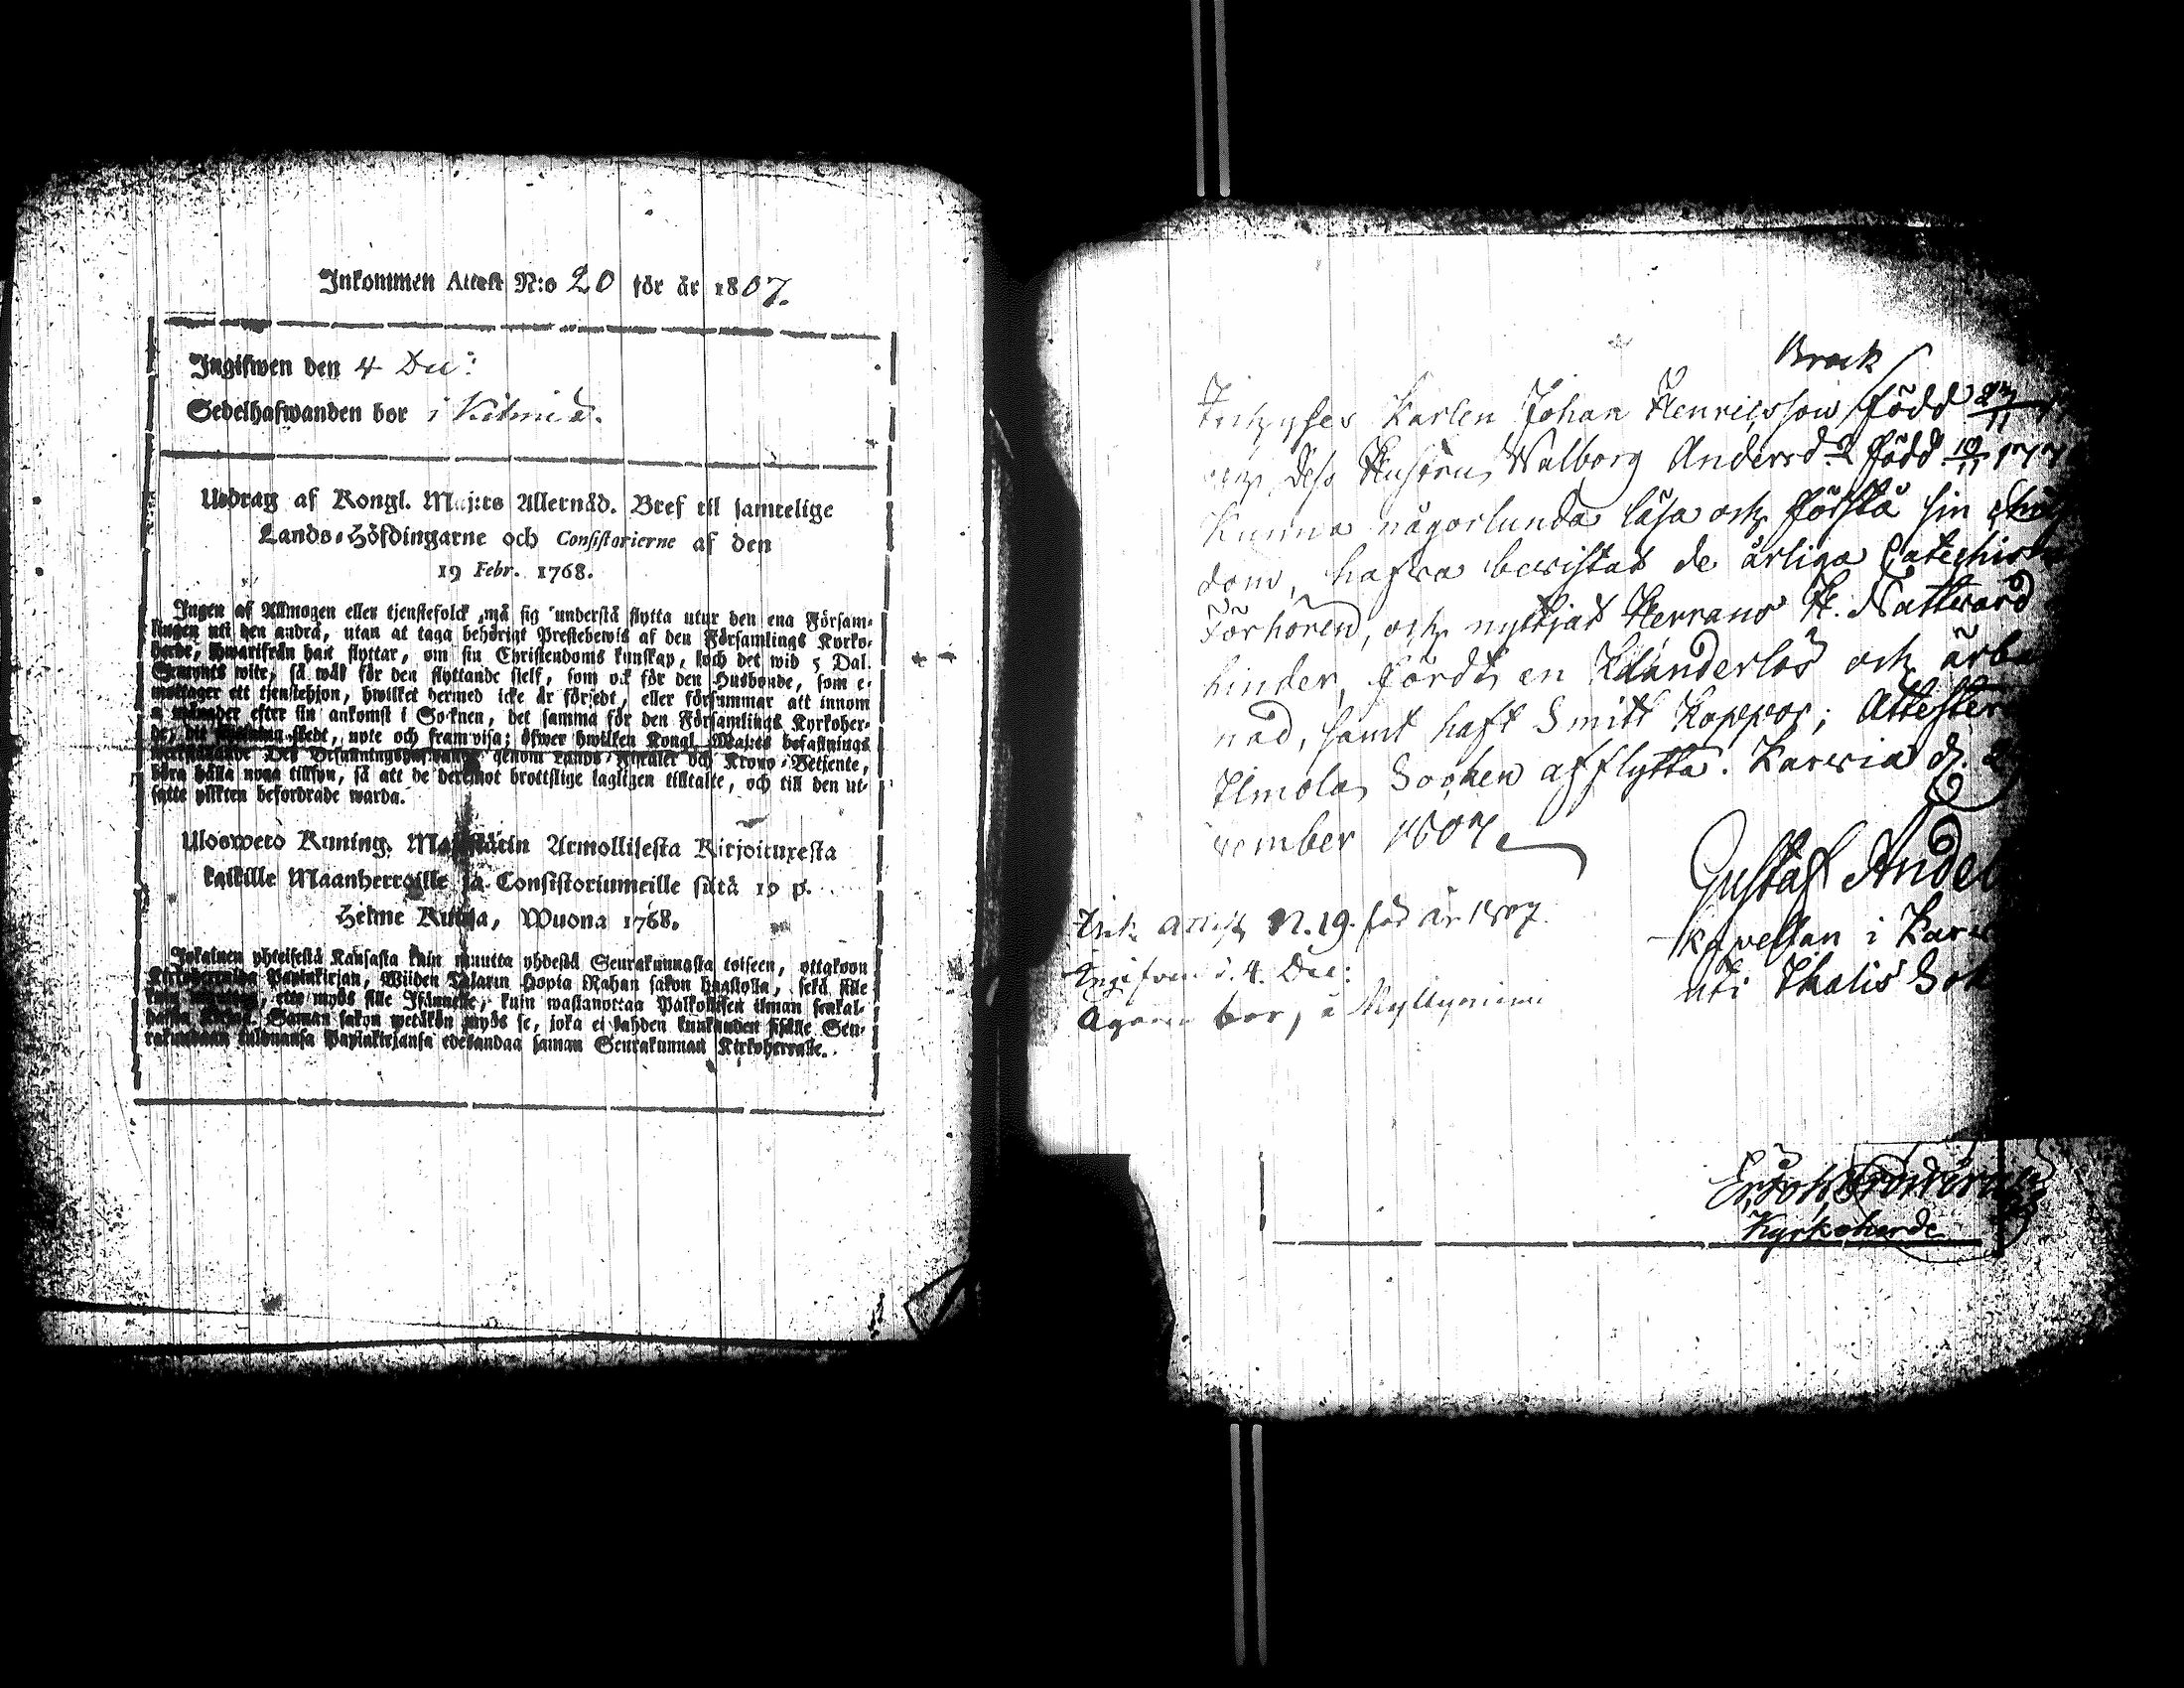 Inkommen Attest N:o 20 för år 1807.
Ingifwen den 4 Dec:
Sedelhafwanden bor i
Utdrag af Kongl. Maj:ts Allernåd. Bref til samtelige
Lands-Höfdingarne och Consistorierne af den
19 Febr. 1768.
Ingen af Allmogen eller tjenstefolck må sig understå flytta utur den ena Försam-
lingen uti den andra, utan at taga behörigt Prestebewis af den Församlings Kyrko-
herde, hwarifrån han flyttar, om sin Christendoms kunskap, och det wid 5 Dal.
Smmts wite, så wäl för den flyttande sielf, som ock för den Husbonde, som e-
mottager ett tjenstehjon, hwilket hermed icke är försedt, eller försummar att innom
månader efter sin ankomst i Socknen, det samma för den Församlings Kyrkoher-
de, dit flyttning skedt, nyte och framwisa; öfwer hwilken Kongl. Maj:ts befallnings
werkställande Des Befallningshafwande genom Lands-Fiskaler och Krono-Betjente,
böra hålla noga tillsyn, så att de deremot brottslige lagligen tilltalte, och till den ut-
satte plikten befordrade warda.
Uloswetö Kuning. Majestätin Armollisesta Kirjoituxesta
kaikille Maanherroille ja Consistoriumeille siitä 19 p.
Helme Kuusa, Wuona 1768.
Jokainen yhteisestä Kansasta kuin muutta yhdestä Seurakunnasta toiseen, ottakoon
Kirkoherralda Papinkirjan, Wiiden Talarin Hopia Rahan sakon haastolla, sekä sille
kuin muuttaa, että myös sille Isännelle, kuin wastanottaa Palkollisen ilman senkal-
daista Kirjaa. Saman sakon wetäkön myös se, joka ei kahden kuukauden sisälle Seu-
rakundaan tulduansa Papinkirjansa edesandaa saman Seurakunnan Kirkoherralle.
Brock
Karlen Johan Henricsson född 27/11
och dess Hustru Walborg Andersd:r född 10/11 177
Kunna någorlunda läsa och förstå sin
dom, hafwa bewistat de årliga Catechis
Förhören, och nyttjat Herrans H. Nattward
hinder, fördt en klanderlös och ärba
nad, samt haft Smitt Koppor; Attester
Ilmola Socken afflytta. Karvia d. 2
vember 1807
Gustaf Andel
Kapellan i Karv
uti Ikalis Sok
Ink. Attest N. 19. för år 1807.
Ingifven d. 4. Dec:
Ägaren bor, å Myllyniemi
Kyrkoherde